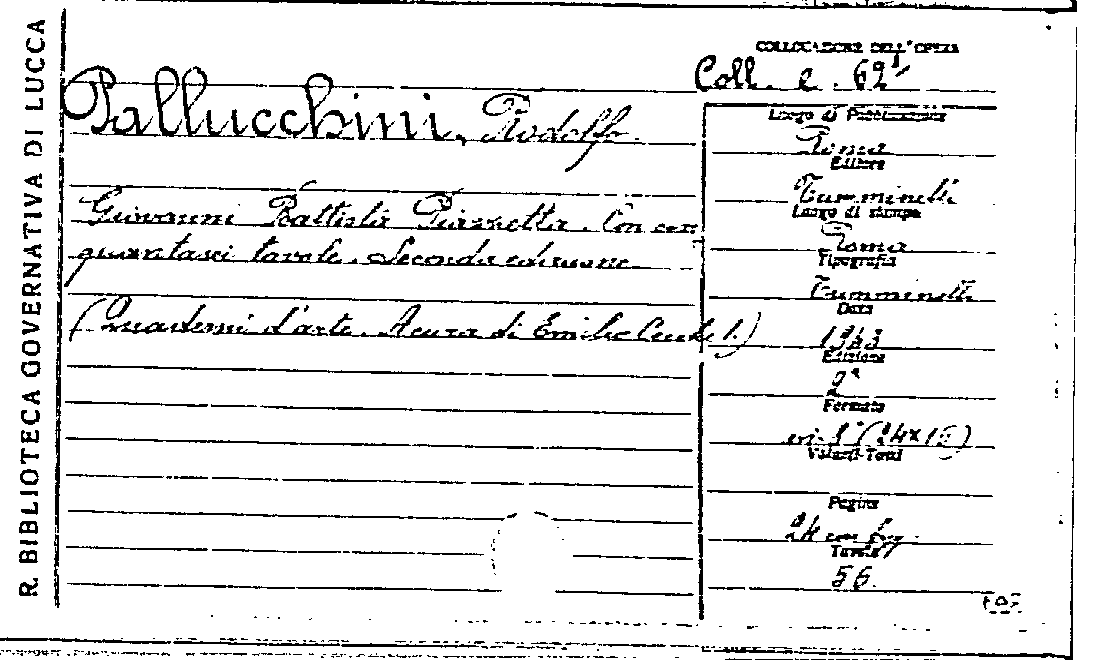 R. BIBLIOTECA GOVERNATIVA DI LUCCA
COLLOCAZIONE DELL'OPERA
Coll. e. 62
Pallucchini, Rodolfo
Giovanni Battista Piazzetta. Con cin
quantasei tavole. Seconda edizione
(Quaderni d'arte. A cura di Emilio Cecchi.)
Luogo di Pubblicazione
Roma
Editore
Tumminelli
Luogo di stampa
Roma
Tipografia
Tumminelli
Data
1943
Edizione
2ª
Formato
in 8° (24x16)
Volumi-Tomi
Pagine
24 con fig.
Tavole
56.